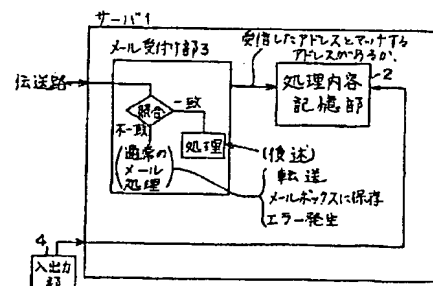 サーバ1
メール受付け部3
受信したアドレスとマッチする
アドレスがあるか、
2
処理内容
記憶部
伝送路
照合
一致
不一致
処理
(後述)
(通常の
メール
処理)
転送
メールボックスに保存
エラー発生
4
入出力
部